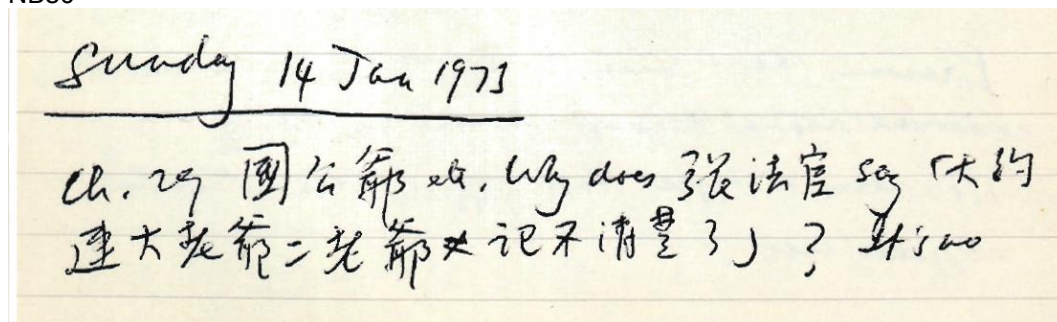 Sunday 14 Jan 1973
Ch. 29 國公爺 etc. Why does 张法官 say 「大约
連大老爺二老爺也记不清楚了」? It's no